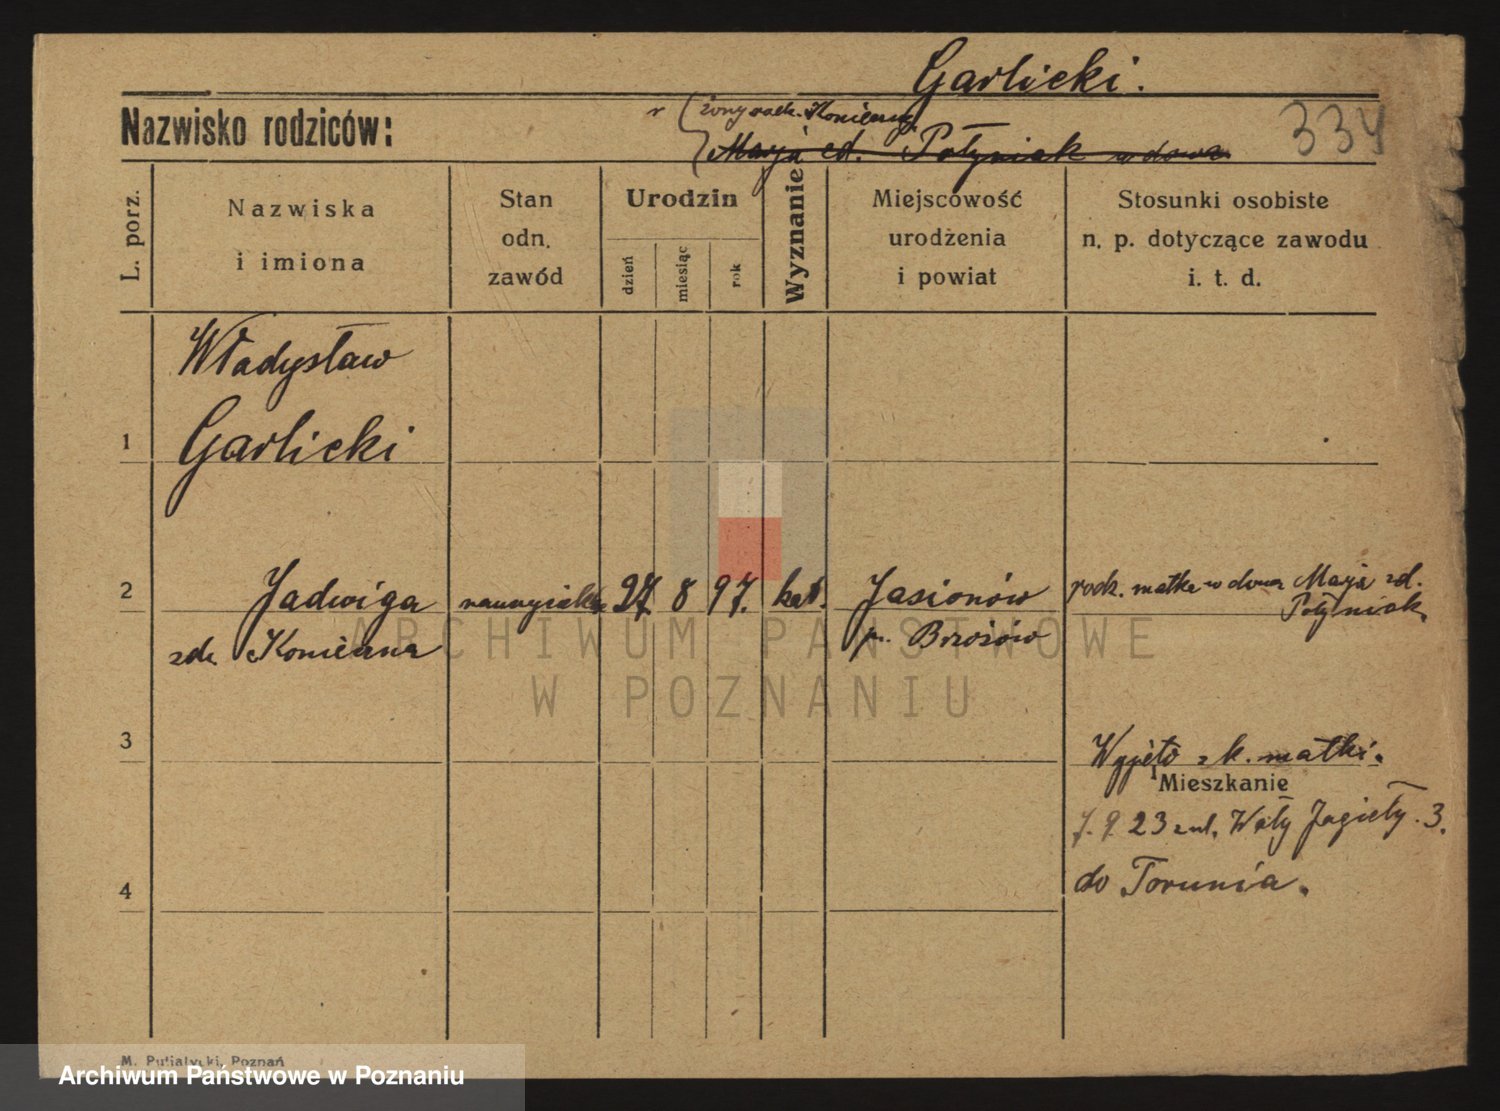 Garlicki.
Nazwisko rodziców:
Marja zd. Potyniak wdowa
334
L. porz.
Nazwiska
i imiona
Stan
odn.
zawód
Urodzin
dzień
miesiąc
rok
Wyznanie
Miejscowość
urodzenia
i powiat
Stosunki osobiste
n. p. dotyczące zawodu
i. t. d.
Władysław
1
Garlicki
2 Jadwiga 27. 8 97. kat. Jasionów rodz. matka wdowa Marja zd.
Potyniak.
zd. p. Brzozów
3
Wyjęto z k. matki.
Mieszkanie
7. 9. 23 z ul. Wały Jagiełły. 3.
do Torunia.
4
M. Putiatycki, Poznań
ARCHIWUM PAŃSTWOWE
W POZNANIU
Archiwum Państwowe w Poznaniu